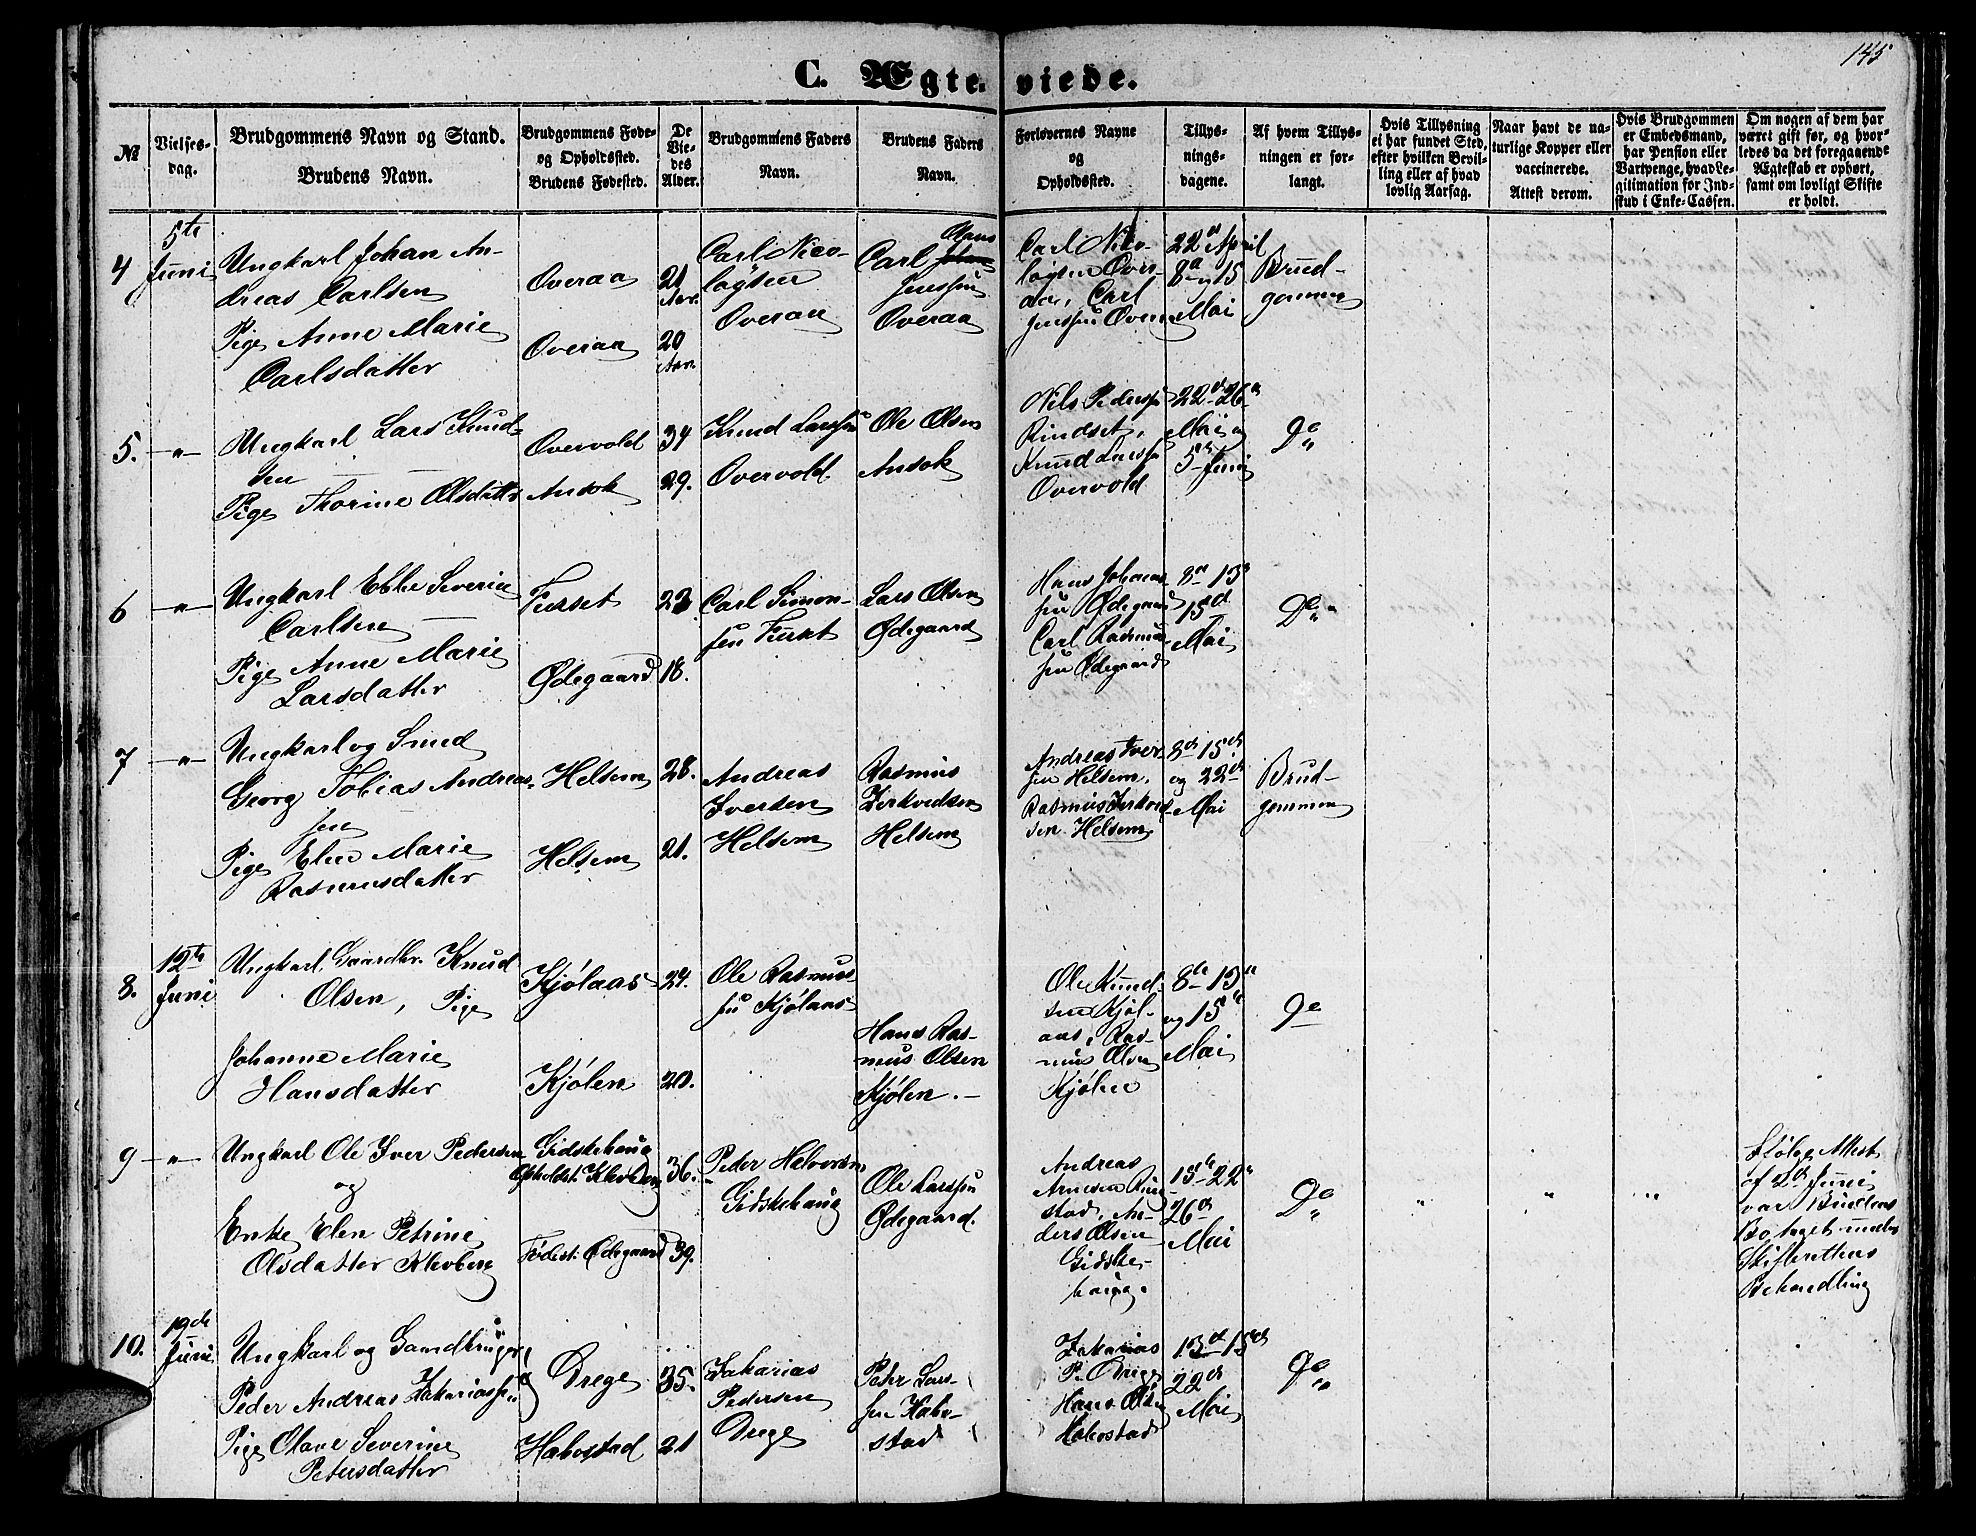 145
C. Ægteviede.
№
Vielses-
dag.
Brudgommens Navn og Stand.
Brudens Navn.
Brudgommens Føde-
og Opholdssted.
Brudens Fødested.
De
Vie-
des
Alder.
Brudgommens Faders
Navn.
Brudens Faders
Navn.
Forlovernes Navne
og
Opholdssted.
Tillys-
nings-
dagene.
Af hvem Tillys-
ningen er for-
langt.
Hvis Tillysning
ei har fundet Sted,
efter hvilken Bevil-
ling eller af hvad
lovlig Aarsag.
Naar havt de na-
turlige Kopper eller
vaccinerede.
Attest derom.
Hvis Brudgommen
er Embedsmand,
har Pension eller
Vartpenge, hvad Le-
gitimation for Ind-
skud i Enke-Cassen.
Om nogen af dem har
været gift før, og hvor-
ledes da det foregaaende
Ægteskab er ophørt,
samt om lovligt Skifte
er holdt.
4
5te
Juni
Ungkarl Johan An-
dreas Carlsen
Pige Anne Marie
Carlsdatter
Overaa
Overaa
21
Aar.
20
Aar.
Carl Nico-
laysen
Overaa
Carl
Jenssen
Overaa
Carl Nico-
laysen Over-
aa, Carl
Jenssen Overaa
22de April
8de og 15
Mai
Brud-
gommen
5.
-"-
Ungkarl Lars Knud-
sen
Pige Thorine Olsdatter
Overvold
Andok
34
29.
Knud Larssen
Overvold.
Ole Olsen
Andok
Nils Pederssen
Rindset,
Knud Larssen
Overvold
22de 26de
Mai og
5te Juni
Do
6
-"-
Ungkarl Ebbe Severin
Carlsen
Pige Anne Marie
Larsdatter
Furset
Ødegaard
23.
18.
Carl Simon-
sen Furset
Lars Olsen
Ødegaard
Hans Johans-
sen Ødegaard
Carl Rasmus-
sen Ødegaard
8de 13de
15de
Mai
Do
7
-"-
Ungkarl og Smed
Georg Tobias Andreas-
sen
Pige Elen Marie
Rasmusdatter
Helsem
Helsem
28.
21.
Andreas
Iversen
Helsem
Rasmus
Helsem
Andreas Iver-
sen Helsem,
sen Helsem
8de 15de
og 22de
Mai
Brud-
gommen
8.
12te
Juni
Ungkarl, Gaardbr. Knud
Olsen, Pige
Johanne Marie
Hansdatter
Kjølaas
Kjølen
24.
20.
Ole Rasmus-
sen Kjølaas
Hans Ras-
mus Olsen
Kjølen.
Ole Knud-
sen Kjøl-
aas, Ras-
mus Olsen
Kjølen
8de 13de
og 15de
Mai
Do
9
-"-
Ungkarl Ole Iver Pedersen
og
Enke Elen Petrine
Olsdatter Klevberg
Gidskehaug
Opholdst. Klevberg
Fødest: Ødegaard
36.
39.
Peder Halvorsen
Gidskehaug
Ole Larssen
Ødegaard.
Andreas
stad, An-
ders Olsen
Gidske-
haug.
15de 22de
26de
Mai
Do
"
"
"
Ifølge Attest
af Juni
var Brudens
Bo taget under
Skifterettens
Behandling
10.
19de
Juni
Ungkarl og Gaardbruger
Peder Andreas Zakariassen
Pige Olave Severine
Petersdatter
Drege
Habostad
35.
21
Zakarias
Pedersen
Drege
Peter Lars-
sen Habo-
stad
Zakarias
P. Drege
Hans Olsen
Habostad
13de 15de
22de
Mai
Do